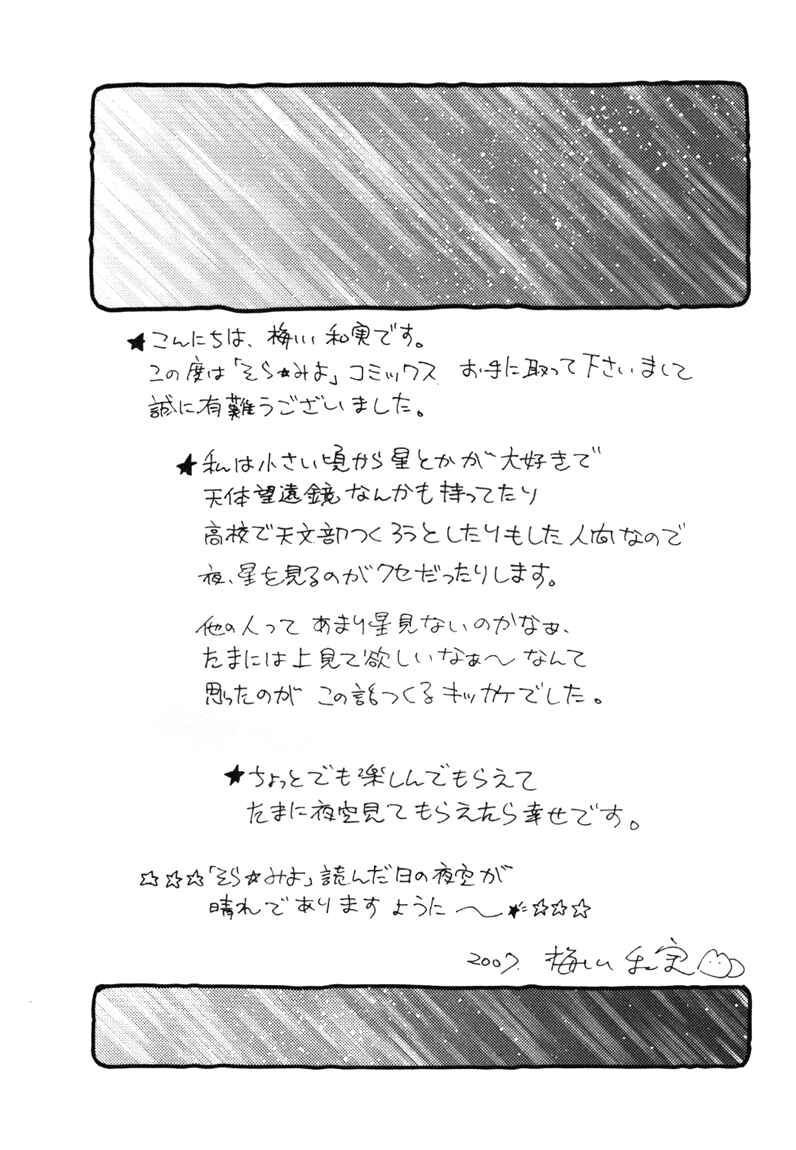 ★こんにちは、梅川和実です。
この度は「そら☆みよ」コミックス お手に取って下さいまして
誠に有難うございました。
★私は小さい頃から星とかが大好きで
天体望遠鏡なんかも持ってたり
高校で天文部つくろうとしたりもした人間なので
夜、星を見るのがクセだったりします。
他の人って あまり星見ないのかなぁ、
たまには上見て欲しいなぁ〜なんて
思ったのが この話つくるキッカケでした。
★ちょっとでも楽しんでもらえて
たまに夜空見てもらえたら幸せです。
☆☆☆「そら☆みよ」読んだ日の夜空が
晴れでありますように〜★☆☆☆
2007. 梅川和実